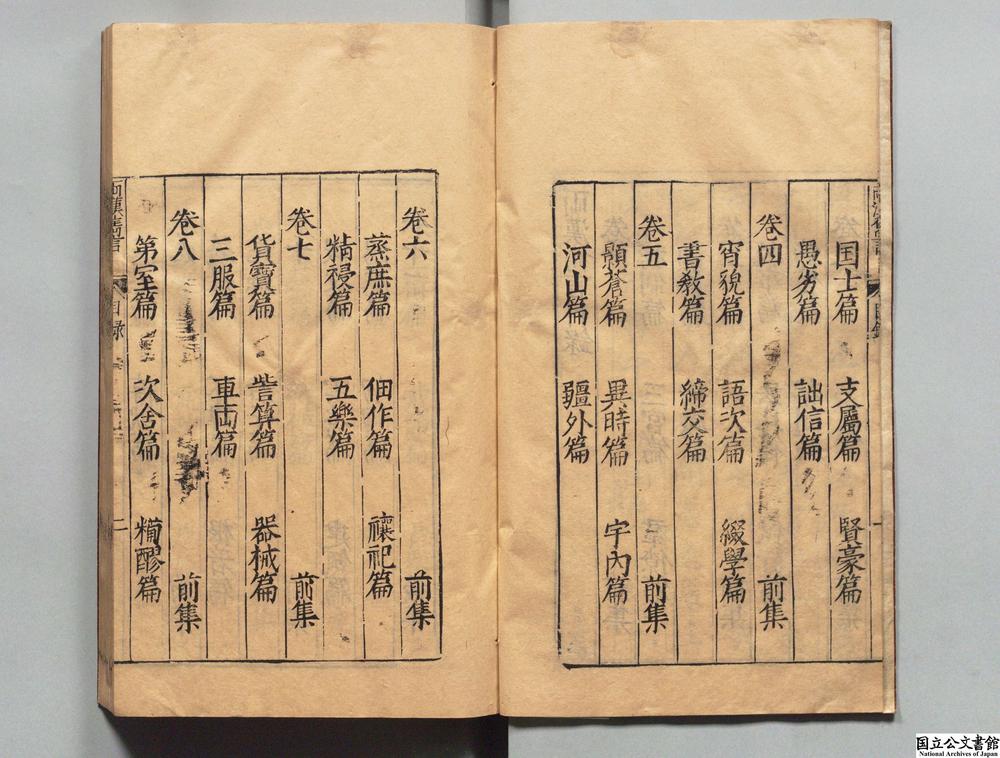 国士篇 支屬篇 賢豪篇
愚劣篇 詘信篇
卷四 前集
宵貌篇 語次篇 綴學篇
書敎篇 締交篇
卷五 前集
顥蒼篇 異時篇 宇內篇
河山篇 疆外篇
卷六 前集
蒸庶篇 佃作篇 禳祀篇
精祲篇 五樂篇
卷七 前集
貨寶篇 訾算篇 器械篇
三服篇 車両篇
卷八 前集
第室篇 次舍篇 糒醪篇
兩漢雋言 目録 二
国立公文書館
National Archives of Japan